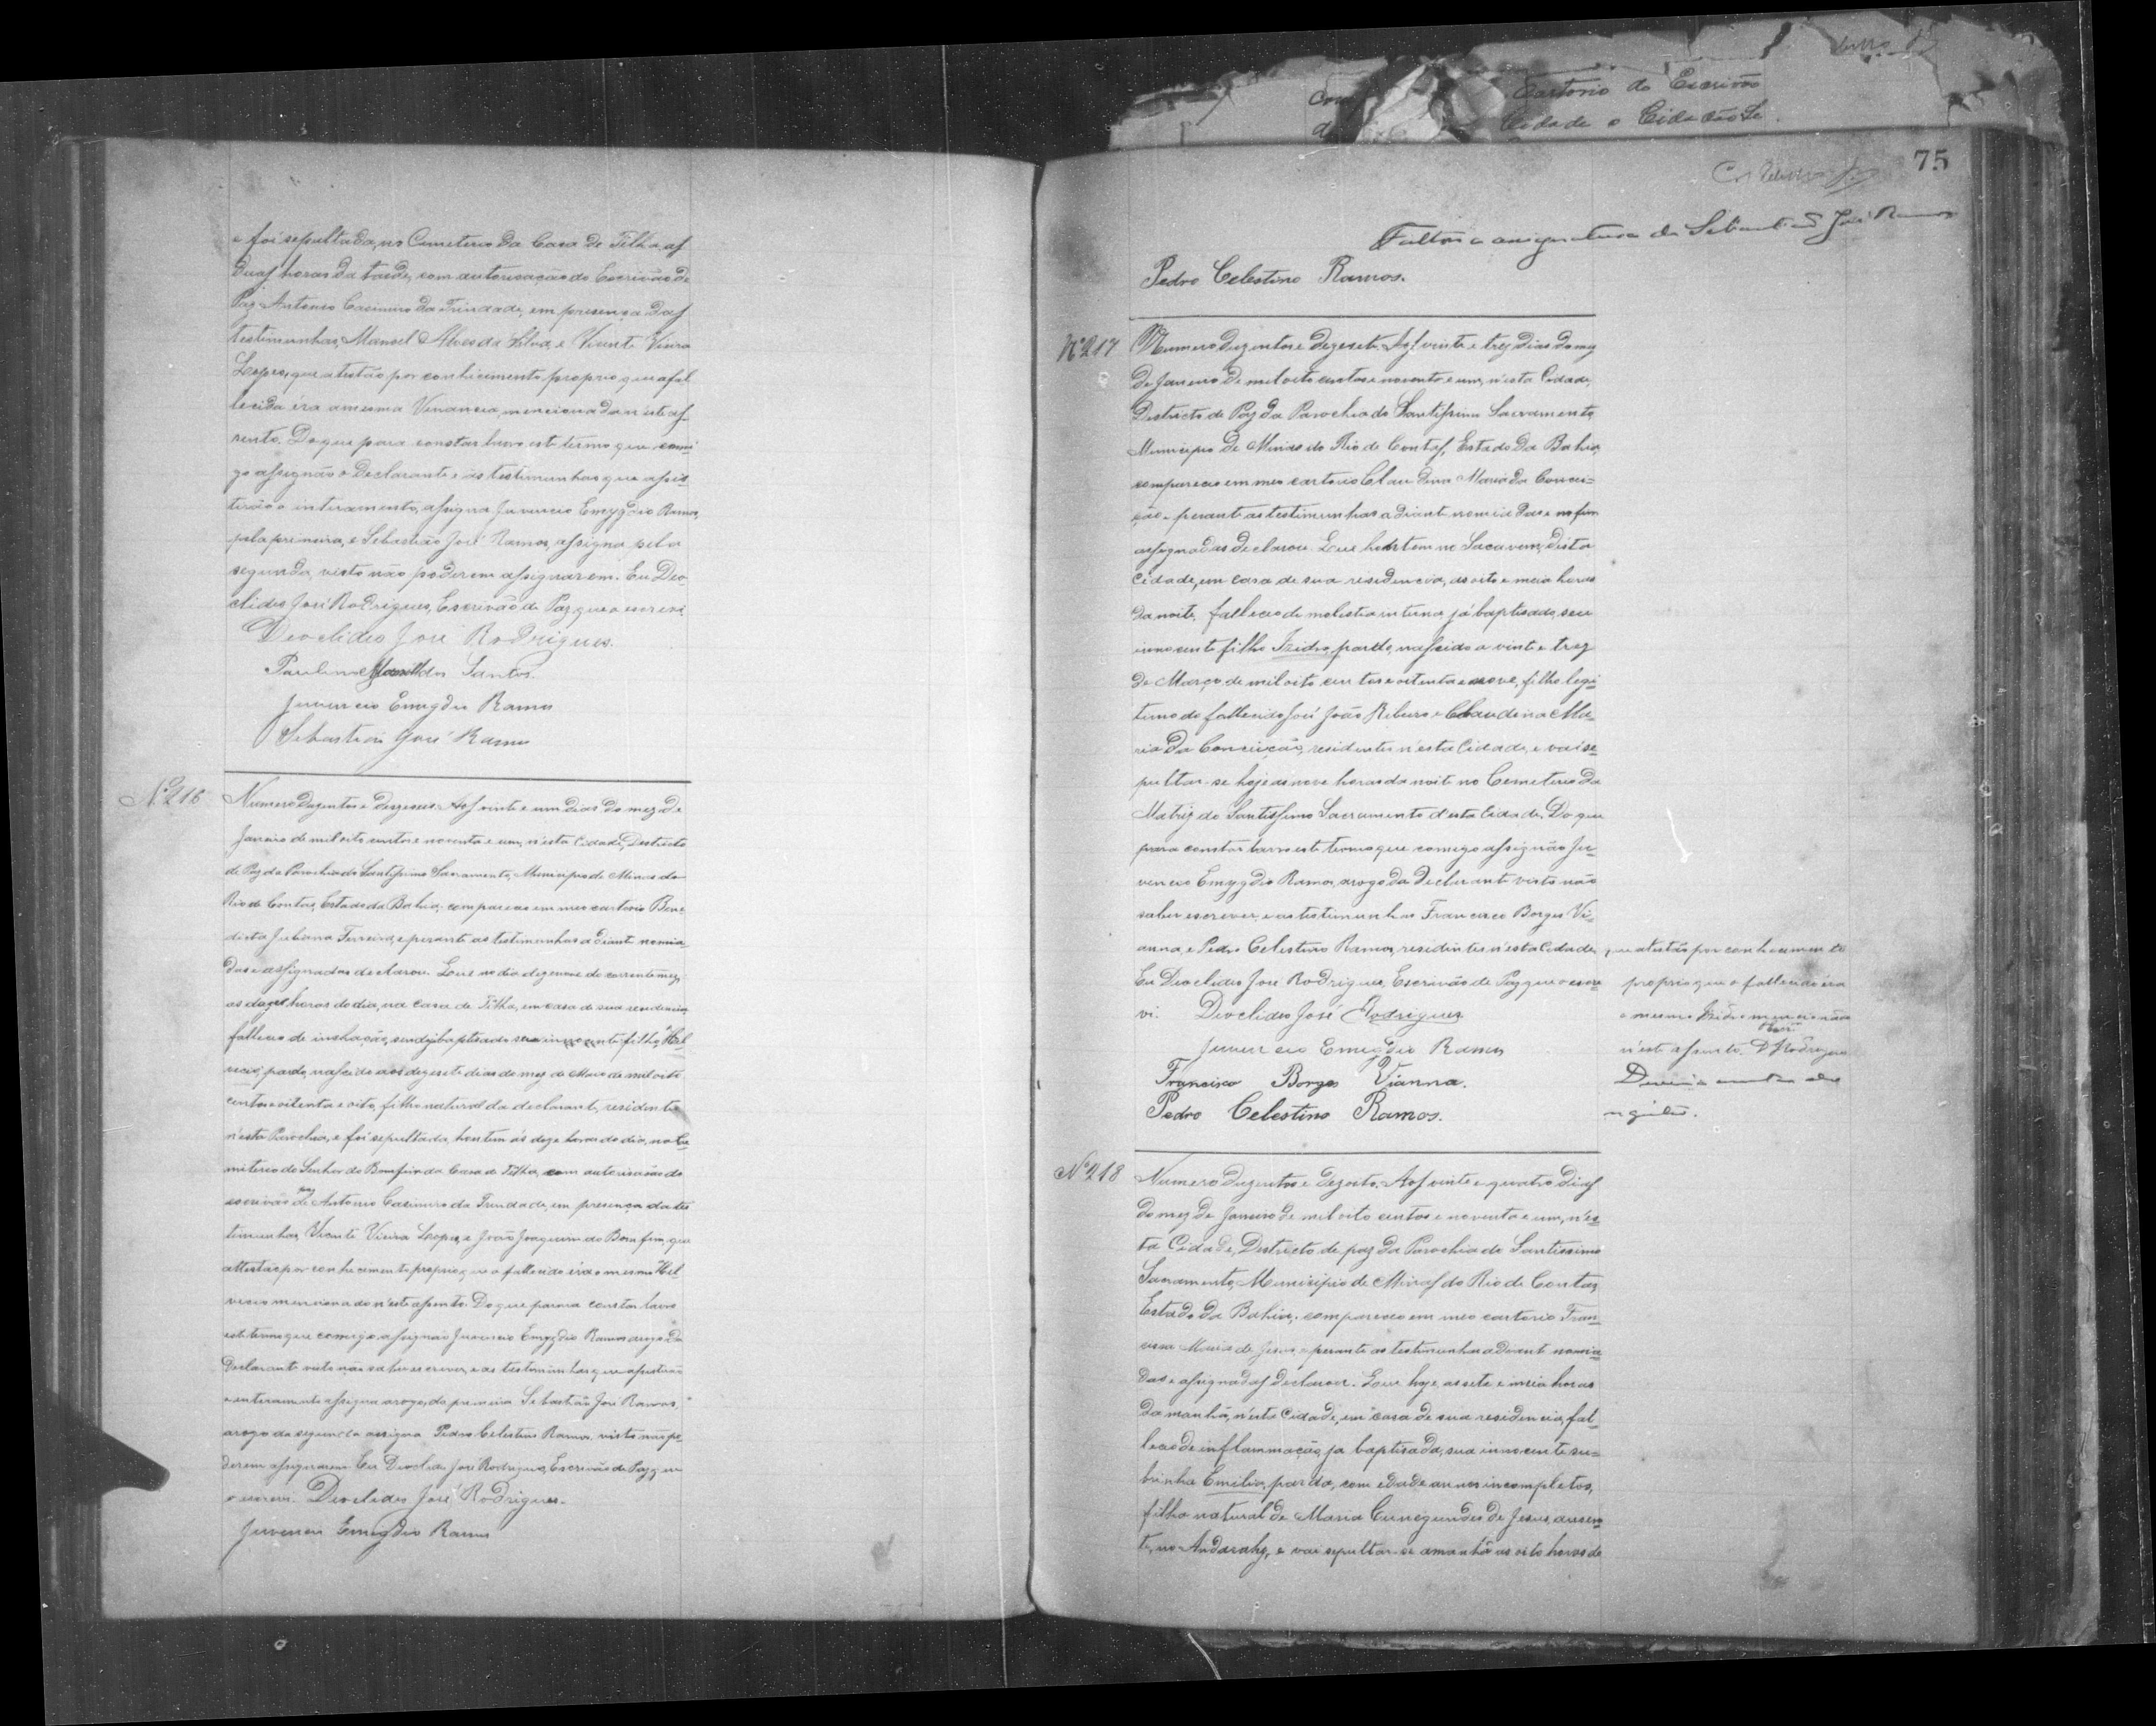 e foi sepultada, no Cimeterio da Casa de Têlha, as
duas horas da tarde, com autorisação do Escrivão de
Paz Antonio Casimiro da Trindade, em presença das
testimunhas, Manoel Alves da Silva, e Vicente Vieira
Lopes, que atestão por conhicimento proprio que a fal
lecida éra a mesma Venancia mencionada n'este as-
sento. Do que para constar lavro este termo que comi
go assignão o Declarante e as testimunhas que assis
tirão o interamento, assigna Juvencio Emygdio Ramos,
pela primeira, e Sebastião José Ramos, assigna pela
segunda, visto não poderem assignarem. Eu Deo
clides José Rodrigues, Escrivão de Paz que o escrevi.
Deoclides José Rodrigues.
Paulino dos Santos.
Juvencio Emygdio Ramos
Sebastião José Ramos
Nº 216
Numero duzentos e desesseis. Aos vinte e um dias do mez de
Janeiro de mil oito centos e noventa e um, n'esta Cidade, Destricto
de Paz da Parochia do Santissimo Sacramento, Municipio de Minas do
Rio de Contas, Estado da Bahia; compareceo em meo cartorio Bene
dicta Juliana Ferreira, e perante as testimunhas adiante nomia
das e assignadas declarou. Que no dia dezenove do corrente mez,
as doze horas do dia, na Casa de Têlha, em casa de sua residencia,
falleceo de inchação, sendo ja baptisado seu innocente filho, Hel
vecio, pardo, nascido aos dezesete dias do mez de Maio de mil oito
centos e oitenta e oito, filho natural da declarante, residente
n'esta Parochia, e foi sepultada, hontem ás doze horas do dia, no Ce
miterio do Senhor do Bomfim da Casa de Têlha, com autorisação do
escrivão de paz Antonio Casimiro da Trindade, em presença da tes
timunhas, Vicente Vieira Lopes, e João Joaquim do Bomfim, que
attestão por conhecimento proprio que o fallecido éra o mesmo Hel
vecio mencionado n'este assento. Do que para constar lavro
este termo que comigo assignão Juvencio Emygdio Ramos arogo da
Declarante visto não saber escrever, e as testimunhas que assistirão
o interamento assigna arogo, da primeira Sebastião José Ramos,
arogo da segunda assigna Pedro Celestino Ramos, visto não po
derem assignarem. Eu Deoclides José Rodrigues, Escrivão de Paz que
o escrevi. Deoclides José Rodrigues.
Juvencio Emygdio Ramos
Cartorio do Escrivão
Cidade o Cidadão
75
Faltou a assignatura de Sebastião José Ramos
Pedro Celestino Ramos.
Nº 217
Numero duzentos e dezesete. Aos vinte e trez dias do mez
de Janeiro de mil oito centos e noventa e um, n'esta Cidade,
Destricto de Paz da Parochia do Santissimo Sacramento,
Municipio de Minas do Rio de Contas, Estado da Bahia,
compareceo em meo cartorio Claudina Maria da Concei=
ção e perante as testimunhas adiante nomiadas e no fim
assignadas declarou. Que hontem no Sacavem, desta
Cidade, em casa de sua residencia, as oito e meia horas
da noite, falleceo de molestia interna, já baptisado, seu
innocente filho Izidro, pardo, nascido a vinte e trez
de Março de mil oito centos e oitenta e nove, filho legi
timo do fallecido José João Ribeiro e Claudina Ma-
ria da Conceição, residentes n'esta Cidade, e vai se
pultar-se hoje as nove horas da noite no Cemeterio da
Matriz do Santissimo Sacramento d'esta Cidade. Do que
para constar lavro este termo que comigo assignão Ju-
vencio Emygdio Ramos, arogo da Declarante visto não
saber escrever, e as testimunhas Francisco Borges Vi-
anna, e Pedro Celestino Ramos, residentes n'esta Cidade, que atestão por conhecimento
Eu Deoclides José Rodrigues, Escrivão de Paz que o escre proprio que o fallecido éra
vi. Deoclides José Rodrigues o mesmo Izidro mencionado
Juvencio Emygdio Ramos n'este assento. D. J. Rodrigues
Francisco Borges Vianna.
Pedro Celestino Ramos.
Nº 218
Numero duzentos e dezoito. Aos vinte e quatro dias
do mez de Janeiro de mil oito centos e noventa e um, n'es
ta Cidade, Destricto de paz da Parochia do Santissimo
Sacramento, Municipio de Minas do Rio de Contas,
Estado da Bahia, compareceo em meo cartorio Fran
cisca Maria de Jesus, e perante as testimunhas adiante nomia
das e assignadas declarou. Que hoje, as sete e meia horas
da manhã, n'esta Cidade, em casa de sua residencia, fal
leceo de inflammação, ja baptisada, sua innocente su=
brinha Emilia, parda, com edade annos incompletos,
filha natural de Maria Cunegundes de Jesus, ausen
te, no Andarahy, e vai sepultar-se amanhã as oito horas de